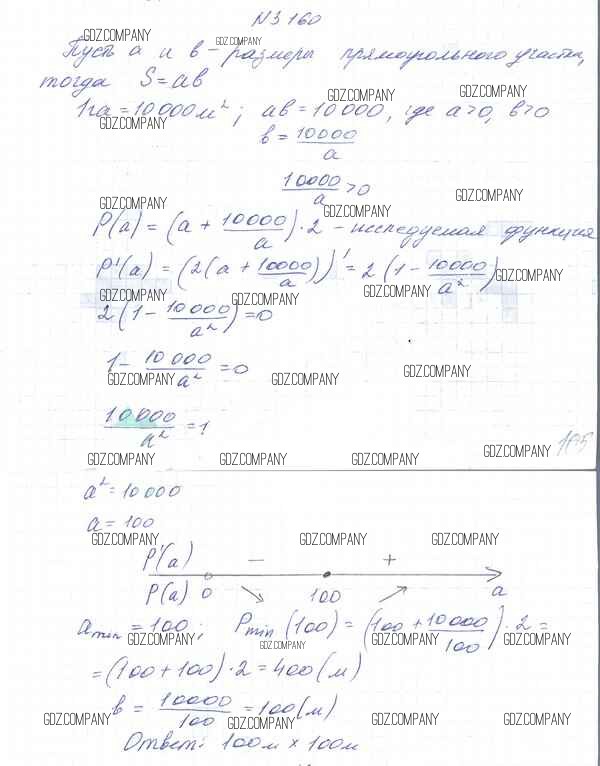 N3160
GDZ.COMPANY GDZ.COMPANY
Пусть a и b - размеры прямоугольного участка,
тогда S = ab
GDZ.COMPANY GDZ.COMPANY
1га = 10 000 м²; ab = 10 000, где a>0, b>0
GDZ.COMPANY
b = 10000/a
10000/a > 0
GDZ.COMPANY GDZ.COMPANY GDZ.COMPANY
P(a) = (a + 10000/a)·2 - исследуемая функция
P'(a) = (2(a + 10000/a))' = 2(1 - 10000/a²)
GDZ.COMPANY
GDZ.COMPANY GDZ.COMPANY GDZ.COMPANY
2(1 - 10000/a²) = 0
1 - 10000/a² = 0
GDZ.COMPANY GDZ.COMPANY GDZ.COMPANY
10000/a² = 1
GDZ.COMPANY GDZ.COMPANY GDZ.COMPANY GDZ.COMPANY
a² = 10000
a = 100
GDZ.COMPANY GDZ.COMPANY GDZ.COMPANY
P'(a) − +
P(a) 0 100 a
a min = 100; P min (100) = (100 + 10000/100)·2 =
GDZ.COMPANY GDZ.COMPANY GDZ.COMPANY GDZ.COMPANY
= (100 + 100)·2 = 400 (м)
b = 10000/100 = 100 (м)
GDZ.COMPANY GDZ.COMPANY GDZ.COMPANY GDZ.COMPANY
Ответ: 100м × 100м